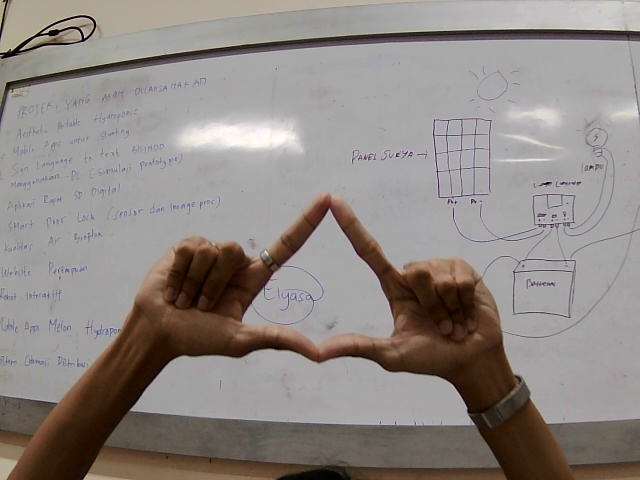 PROJEK YANG AKAN DILAKSANAKAN
Aesthetic Portable Hydroponic
Mobile Apps untuk Stunting
Sign Language to text BISINDO
Menggunakan DL (simulasi prototype)
Aplikasi Rapor SD Digital
Smart Door Lock (sensor dan image proc)
Kualitas Air Bioflok
Website Perempuan
Robot Interaktif
Mobile Apps Melon Hydroponi
Sistem Otomasi Distribusi
Elyasa
PANEL SURYA →
P+
P-
LAMPU
Baterai